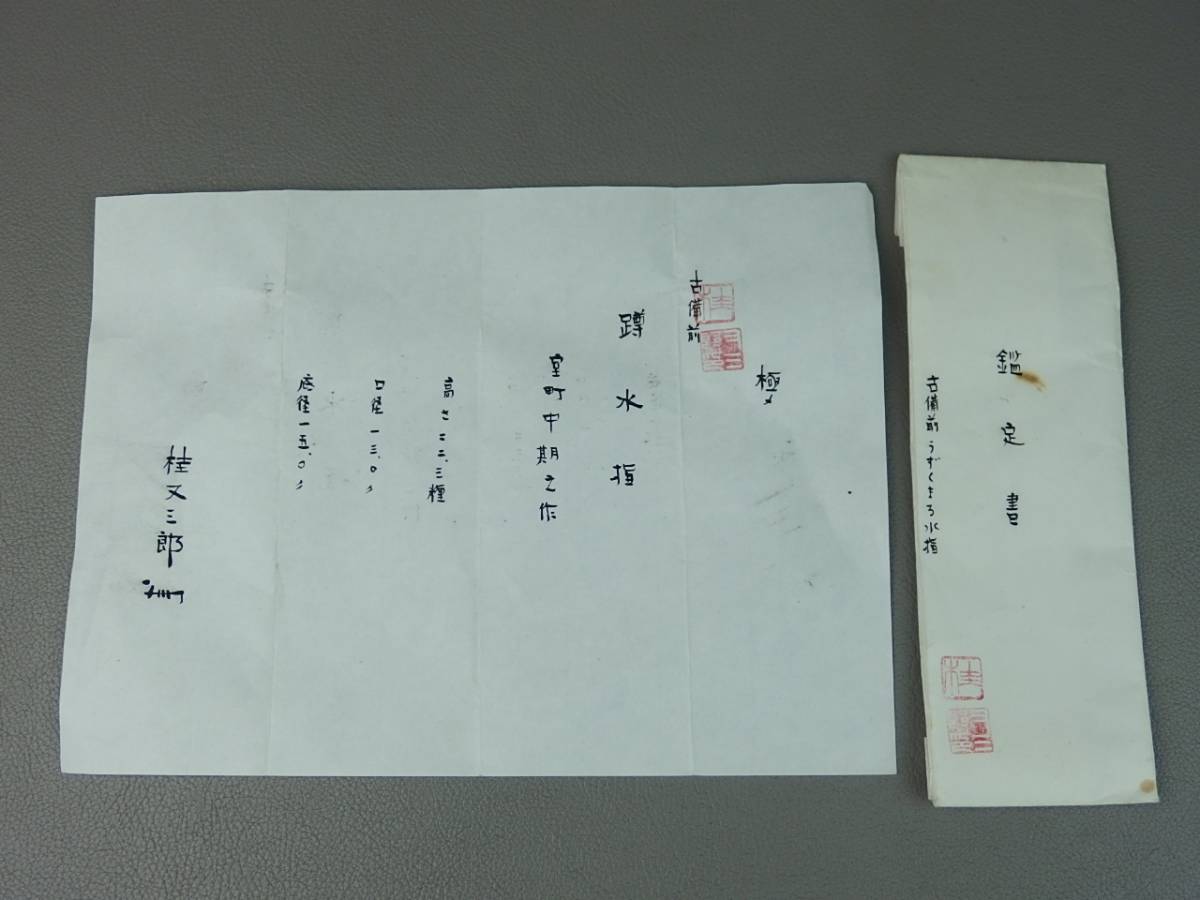 極メ
古備前
蹲水指
室町中期之作
高さ二二、三糎
口径一三、〇〃
底径一五、〇〃
桂又三郎
鑑定書
古備前うずくまる水指
桂